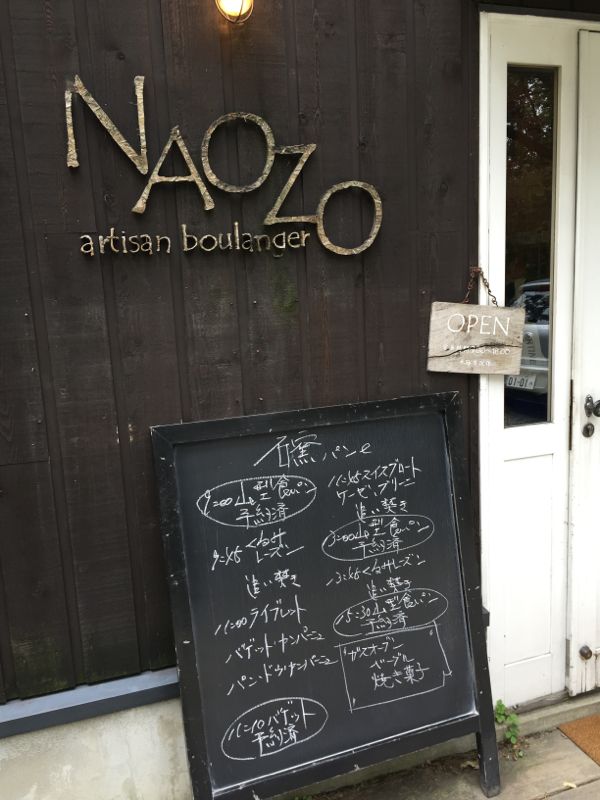 NAOZO
artisan boulanger
OPEN
01-01
石窯パン
9:00 山型食パン
予約済
9:45 くるみ
レーズン
追い焚き
11:00 ライブレット
バゲット・カンパーニュ
パン・ド・カンパーニュ
11:10 バゲット
予約済
11:45 スイスブロート
追い焚き
13:00 山型食パン
予約済
13:45 レーズン
追い焚き
15:30 山型食パン
予約済
ガスオーブン
ベーグル
焼き菓子